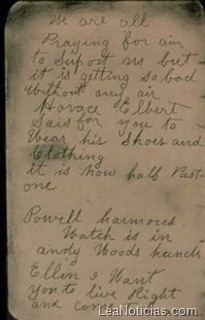 We are all
Praying for air
to Suport us but
it is getting so bad
without any air
Horace Elbert
Said for you to
Wear his Shoes and
Clothing
it is now half Past
one
Powell harmons
Watch is in
andy Woods hands
Ellen I Want
you to live Right
and come
LeaNoticias.com